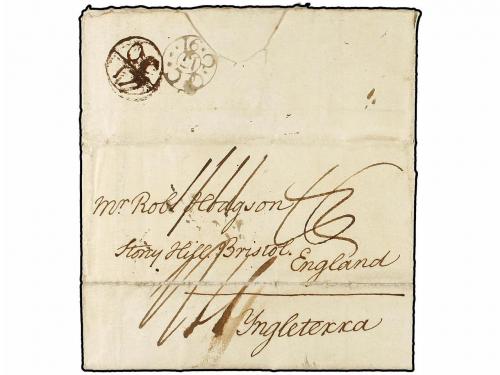 16
Mr. Robt. Hodgson
Stony Hill. Bristol.
England
Yngleterra